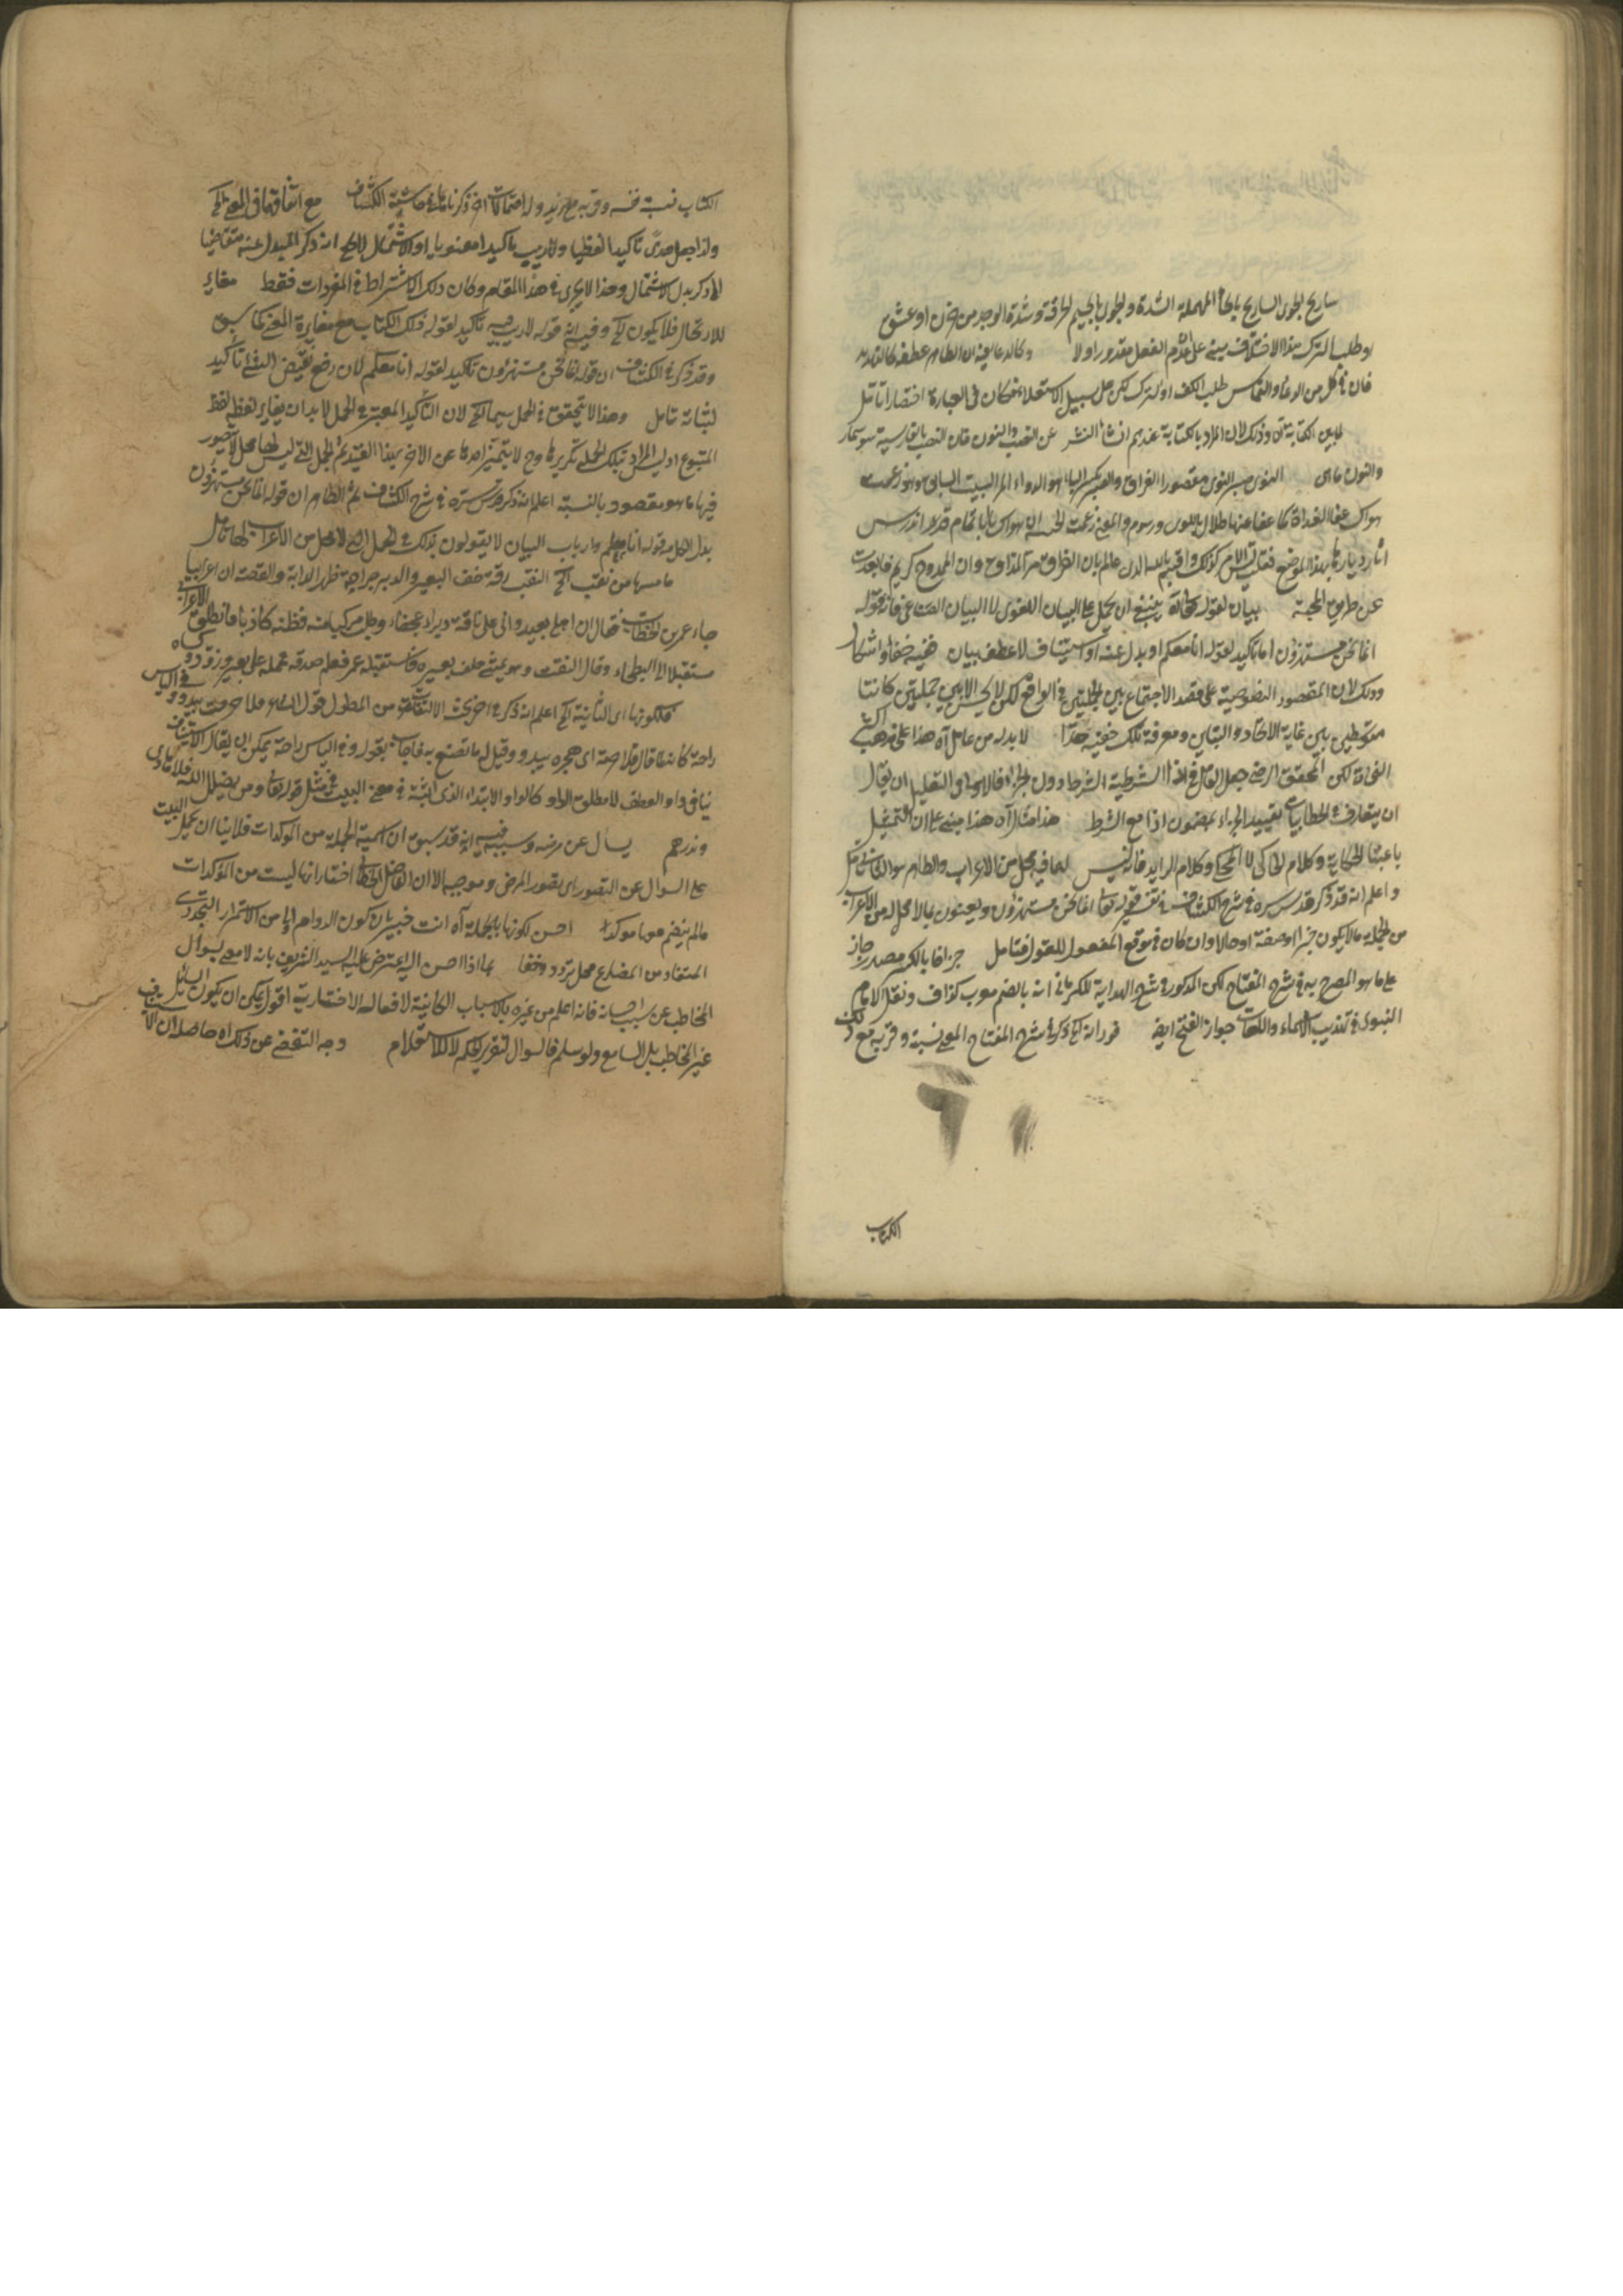 تباريح الجوى التباريح بالحاء المهملة الشدة والجوى بالجيم الحرقة وشدة الوجد من حزن او عشق
او طلب الترك هذا الاختلاف مبني على ان عدم الفعل مقدور اولا
فان في كل من الدعاء والتماس طلب الكف او الترك لكن على سبيل الاستعلاء فكان في العبارة اختصارا تأمل
وذلك لان المراد بالكتابة عندهم انشاء النثر عن الضب والنون فان الضب بالفارسية سوسمار
والنون ماهى النوى مقصورا الفراق والصبر بكسر الباء هو الدواء المر البيت السابق هو زعمت
هواك عفا الغداة كما عفا عنها طلال باللوى ورسوم والمعنى زعمت ان هواك بالتمام قد اندرس
آثار ديارها بهذا الموضع فقلت ليس الامر كذلك واقسم بالله الذى عالم بان الفراق مر المذاق وان الممدوح كريم
عن طريق المحبة بيان لقوله ينبغي ان يحمل على البيان اللغوى لا البيان
انما نحن مستهزؤن اما تأكيد لقوله انا معكم او بدل عنه او استيناف لا عطف بيان ففيه خفاء واشكال
وذلك لان المقصود التنصيص على قصد الاجتماع بين الجملتين في الواقع لكن لا بين جملتين كانتا
متوسطتين بين غاية الاتحاد والتباين ومعرفة تلك خفية جدا لا بد له من عامل آه هذا على مذهب اكثر
النحاة لكن المحقق الرضي جعل العامل في اذا الشرطية الشرط دون الجزاء فالاولى في التعليل ان يقال
ان يتعارف في الخطابيات تقييد الجزاء بمضمون اذا مع الشرط هذا مثال آه هذا مبني على ان التمثيل
باعتبار الحكاية وكلام الحاكى لا المحكى وكلام فانه ليس لها فيه محل من الاعراب والظاهر هو الثاني
واعلم انه قد ذكر قدس سره في شرح الكشاف في تفسير قوله تعالى انما نحن مستهزؤن ويعنون بما لا محل له من الاعراب
من الجملة ما لا يكون خبرا او صفة او حالا وان كان في موقع المفعول للقول فتأمل جزافا بالكسر مصدر جازف
على ما هو المصرح به في شرح المفتاح لكن المذكور في شرح الهداية للكرماني انه بالضم معرب كزاف ونقل الامام
النووى في تهذيب الاسماء واللغات جواز الفتح ايضا ذكر في شرح المفتاح المعنى نسبة وقرية مع ذلك
الكتاب
الكتاب نسبة نفسه وقربه مع زيد وله احتمالات اخر ذكرناها في حاشية الكشاف مع اتفاقهما في المعنى الخ
ولذا جعل هدى تأكيدا لفظيا ولا ريب تأكيدا معنويا او الاشتمال الخ انه ذكر المبدل عنه متقاضيا
لذكر بدل الاشتمال وهذا لا يجرى في هذا المقام وكان ذلك الاشتراط في المفردات فقط مغاير
للارتحال فلا يكون الخ وفيه ان قوله لا ريب فيه تأكيد لقوله ذلك الكتاب مع مغايرة المعنى كما سبق
وقد ذكر في الكشاف ان قوله انما نحن مستهزؤن تأكيد لقوله انا معكم لان رفع نقيض الشئ تأكيد
لثباته تأمل وهذا لا يتحقق في الجمل سيما الخ لان التأكيد المعتبر في الجمل لا بد ان يغاير لفظه لفظ
المتبوع اذ ليس المراد بتلك الجملة تكريرها وح لا يتميز احدهما عن الآخر بهذا القيد ثم الجمل التي ليس لها محل لا يتصور
فيها ما هو مقصود بالنسبة اعلم انه ذكر قدس سره في شرح الكشاف ثم الظاهر ان قوله انما نحن مستهزؤن
بدل الكل من قوله انا معكم وارباب البيان لا يقولون بذلك في الجمل التي لا محل من الاعراب لها تأمل
ما مسها من نقب الخ النقب رقة خف البعير والدبر جراحة ظهر الدابة والقصة ان اعرابيا
جاء عمر بن الخطاب فقال ان اهلي بعيد واني على ناقة دبراء عجفاء وطلب مركبا منه فظنه كاذبا فانطلق الاعرابي
مستقبلا الى البطحاء وقال النقب وهو يمشي خلف بعيره فاستقبله عمر فعلم صدقه فحمله على بعير وزوده وكساه
فلكونها اى الثانية الخ اعلم انه ذكر في اواخر بحث الالتفات من المطول قول الشاعر فلا صرمه يبدو وفي اليأس
راحة كانه لما قال فلا صرمه اى هجره يبدو وقيل له ما تصنع به فاجاب بقوله وفي اليأس راحة يمكن ان يقال الاستيناف
ينافى واو العطف لا مطلق الواو كالواو الابتداء الذى اثبته في مغنى اللبيب في مثل قوله تعالى ومن يضلل الله فلا هادى
ويذرهم يسأل عن مرضه وسببه فيه انه قد سبق ان اسمية الجملة من المؤكدات فلا ينبغي ان يحمل البيت
على السؤال عن التصور اى تصور المرض وموجبه الا ان الفاضل المحشى اختار انها ليست من المؤكدات
ما لم ينضم معها مؤكد احسن لكونها بالجملة آه انت خبير بان كون الدوام من الاستمرار التجددى
المستفاد من المضارع محل تردد وخفاء لما اذا احسن اليه اعترض عليه السيد الشريف بانه لا معنى لسؤال
المخاطب عن سبب احسانه فانه اعلم من غيره بالاسباب الكائنة لافعاله الاختيارية اقول يمكن ان يكون السائل
غير المخاطب بل السامع ولو سلم فالسؤال لتقرير الحكم لا للاستعلام وجه التفصي عن ذلك آه حاصله ان الاستيناف